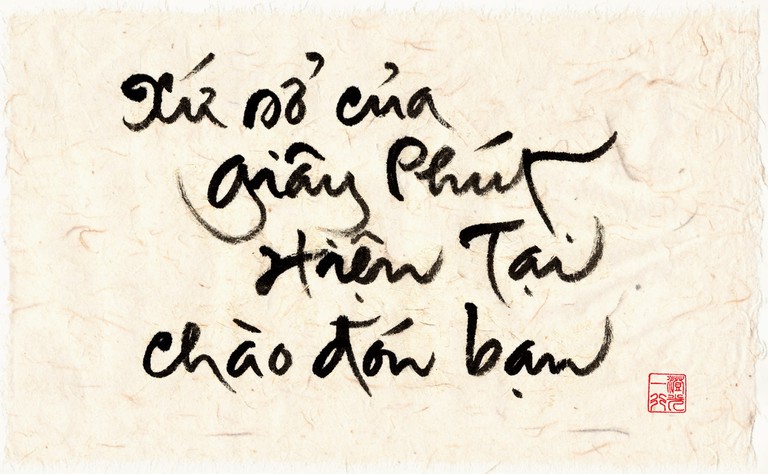 Xứ sở của
Giây Phút
Hiện Tại
chào đón bạn